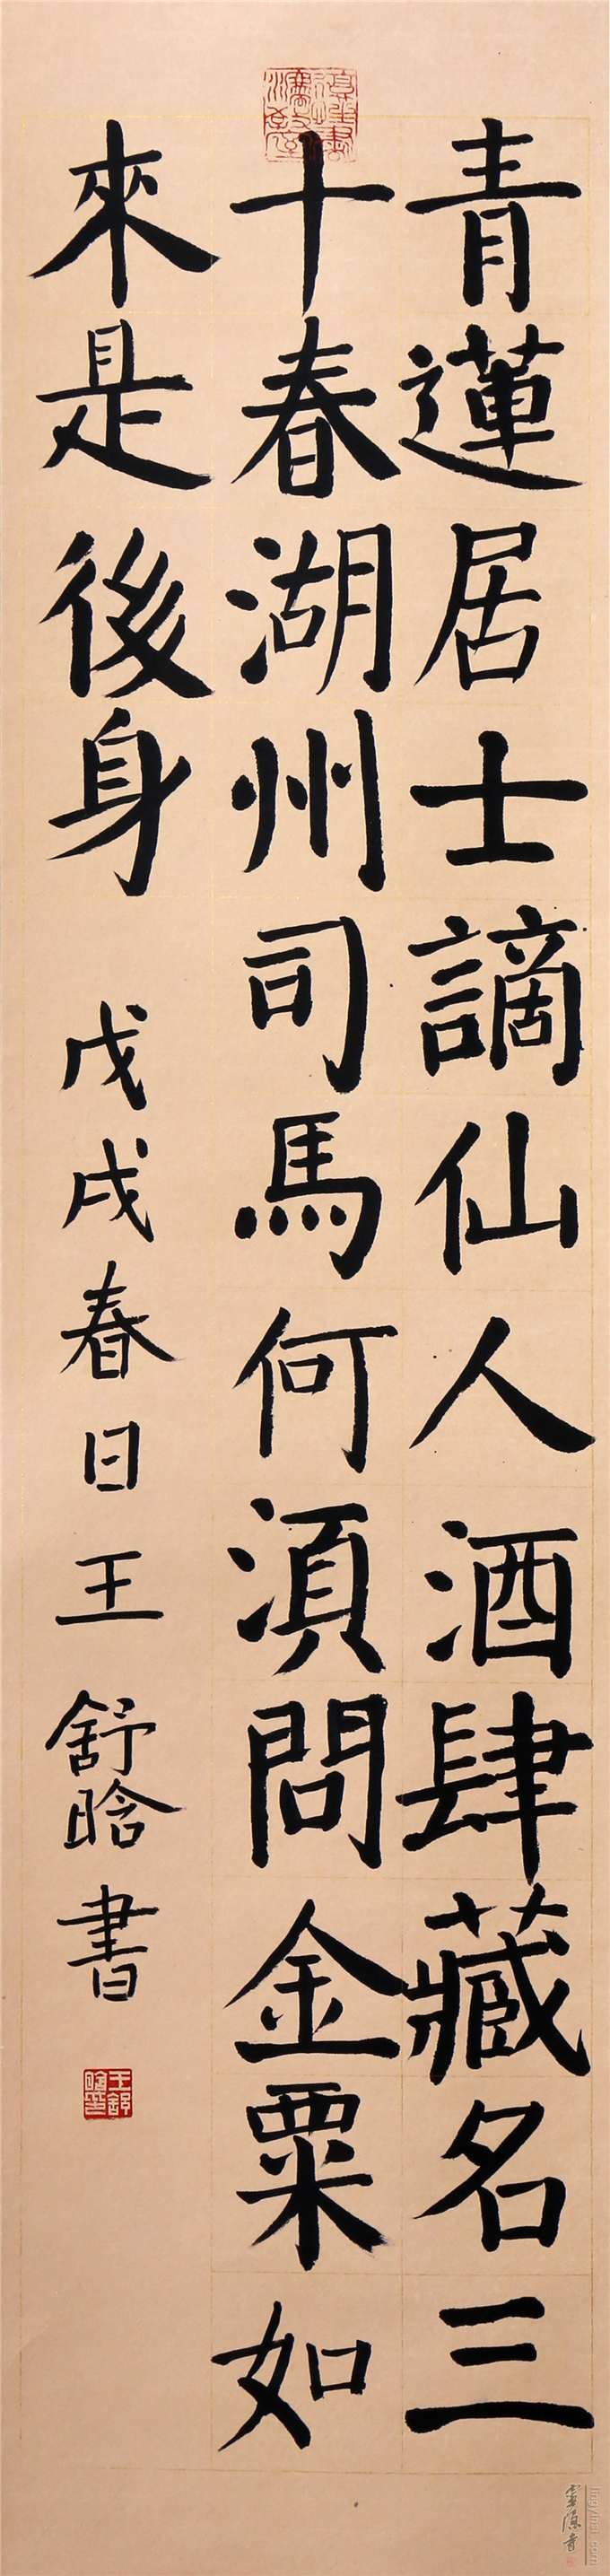 青蓮居士謫仙人酒肆藏名三
十春湖州司馬何須問金粟如
來是後身
戊戌春日王舒晗書